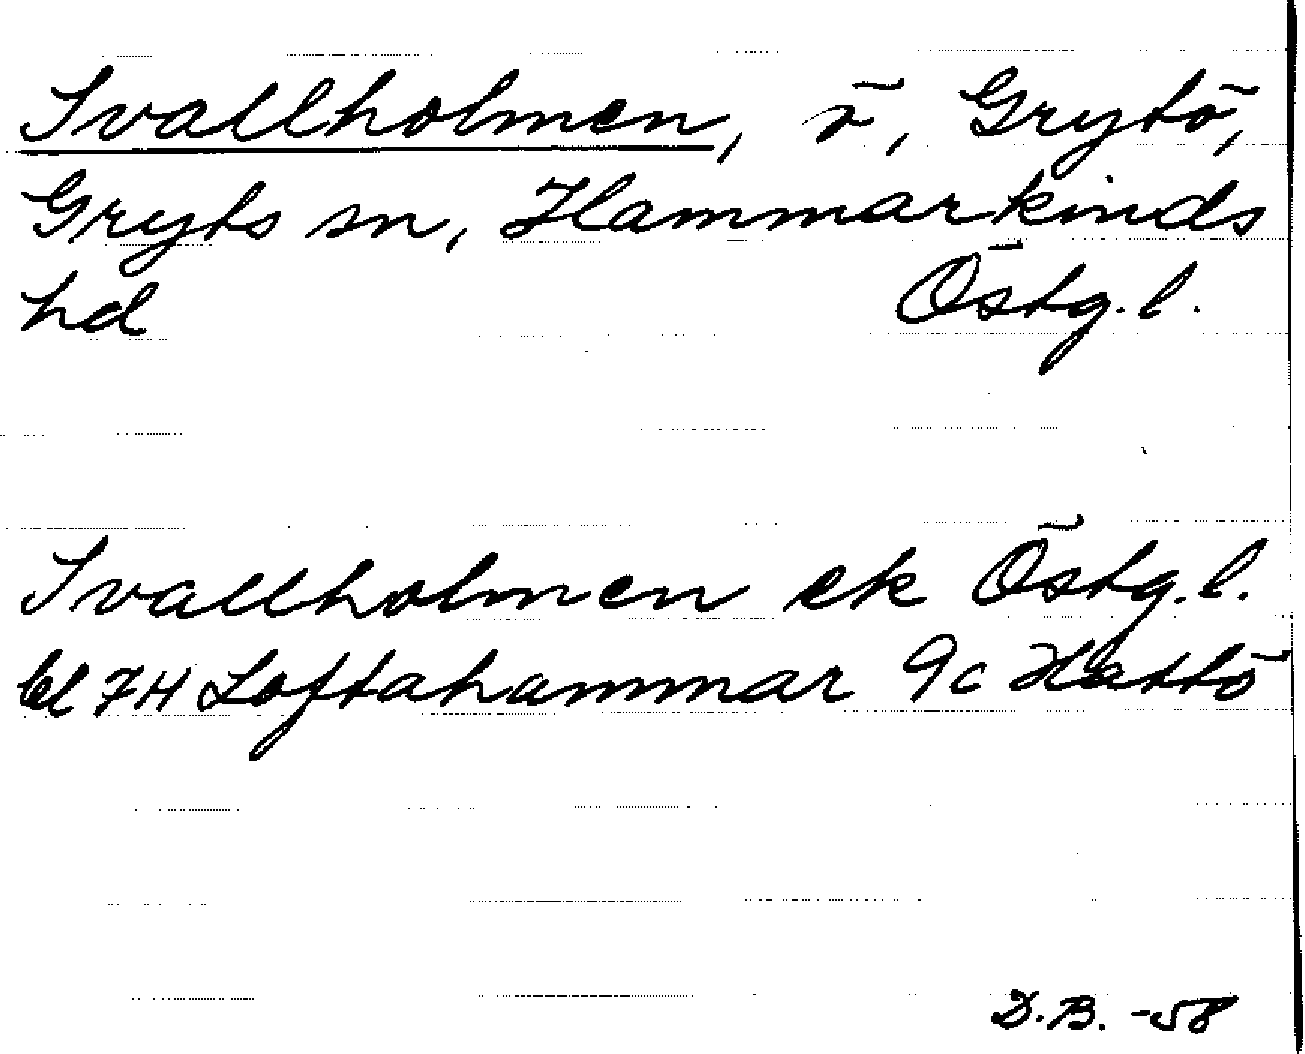 Svallholmen, ö, Grytö,
Gryts sn, Hammarkinds
hd Östg. l.
Svallholmen ek Östg. l.
bl 7H Loftahammar 9c Hattö
D.B. -58